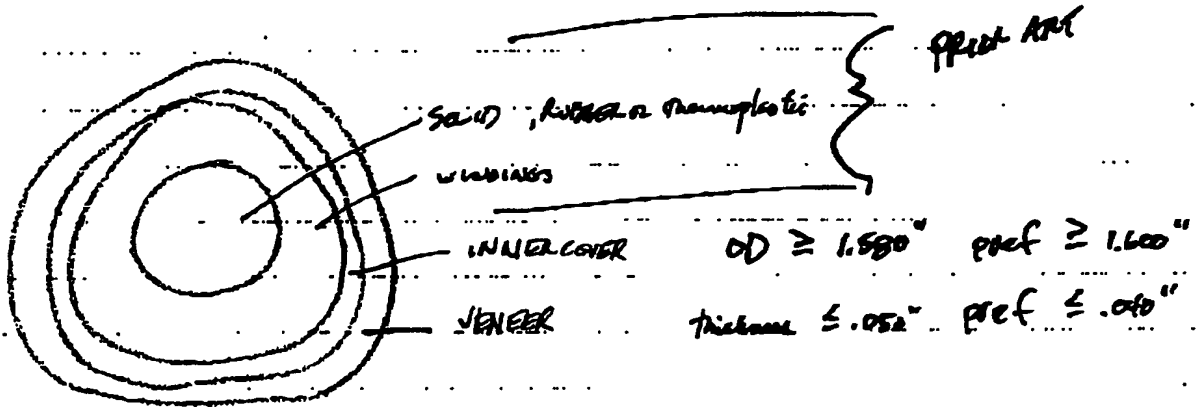 PRIOR ART
SOLID, RUBBER or thermoplastic
WINDINGS
INNER COVER OD ≥ 1.580" pref ≥ 1.600"
VENEER thickness ≤ .052" pref ≤ .040"